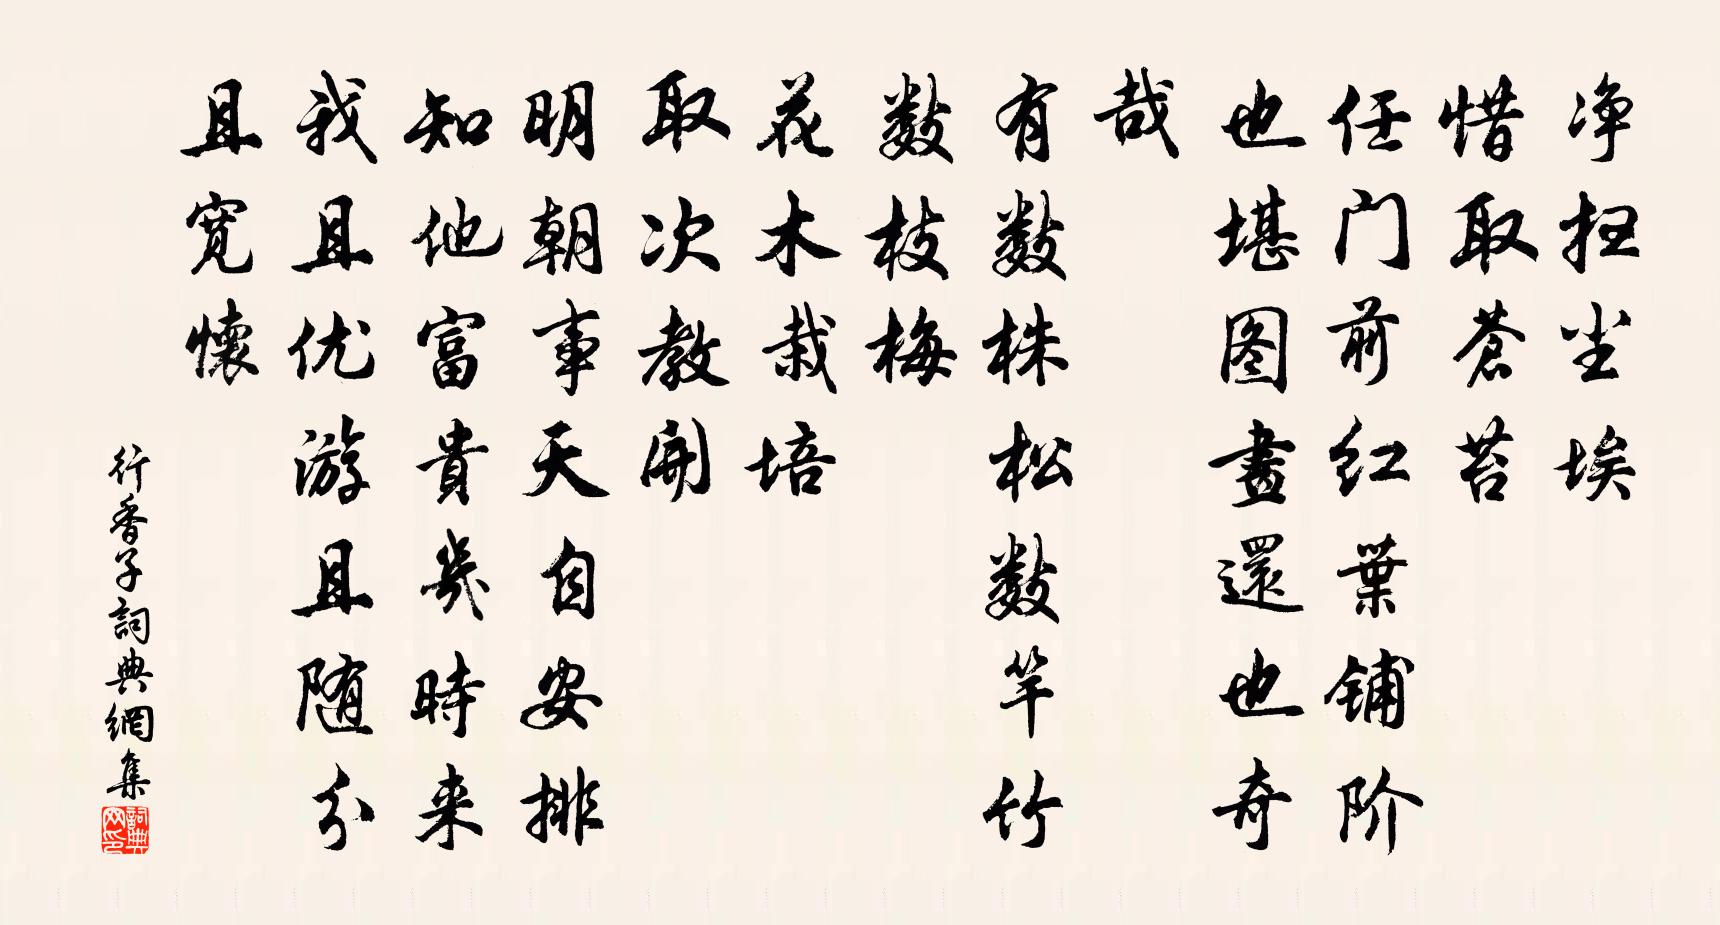 净扫尘埃
惜取苍苔
任门前红葉铺阶
也堪图畫還也奇
哉
有数株松数竿竹
数枝梅
花木栽培
取次教開
明朝事天自安排
知他富貴幾時来
我且优游且随分
且寛懷
行香子詞典網集
詞典網印